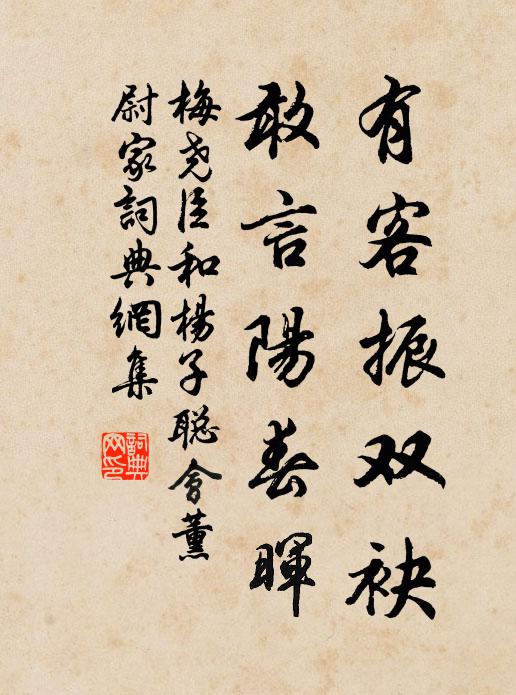 有客振双袂
敢言陽春暉
梅尧臣和楊子聪會董
尉家詞典網集
詞典
网印